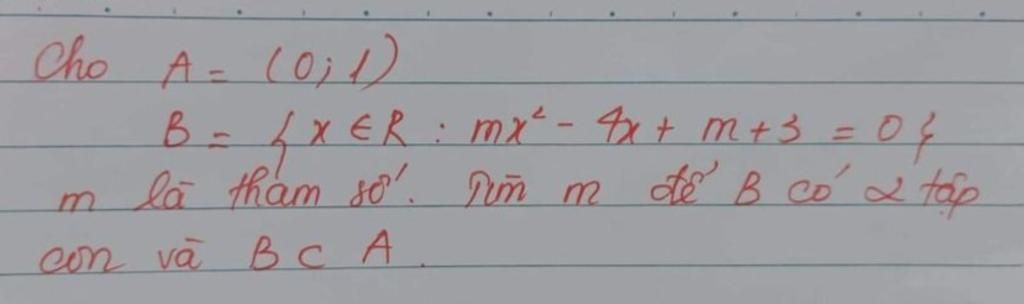 Cho A = (0; 1)
B = { x ∈ R : mx² - 4x + m + 3 = 0 }
m là tham số. Tìm m để B có 2 tập
con và B ⊂ A.